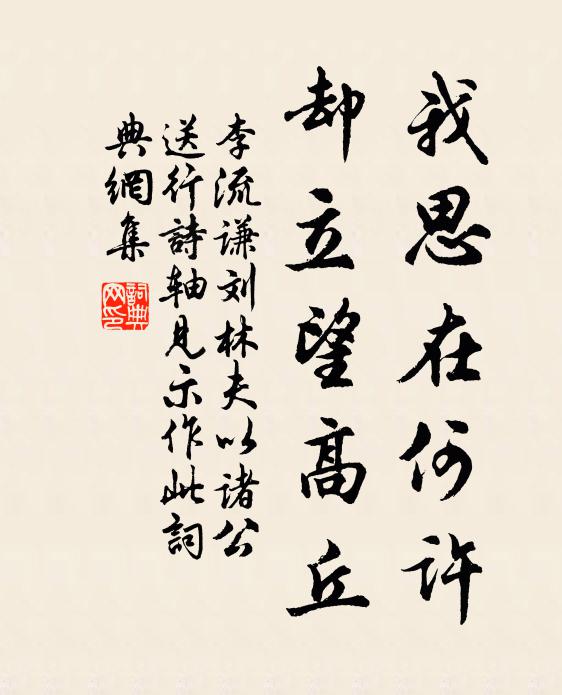 我思在何许
却立望高丘
李流谦刘林夫以诸公
送行詩軸见示作此詞
典網集
詞典网印